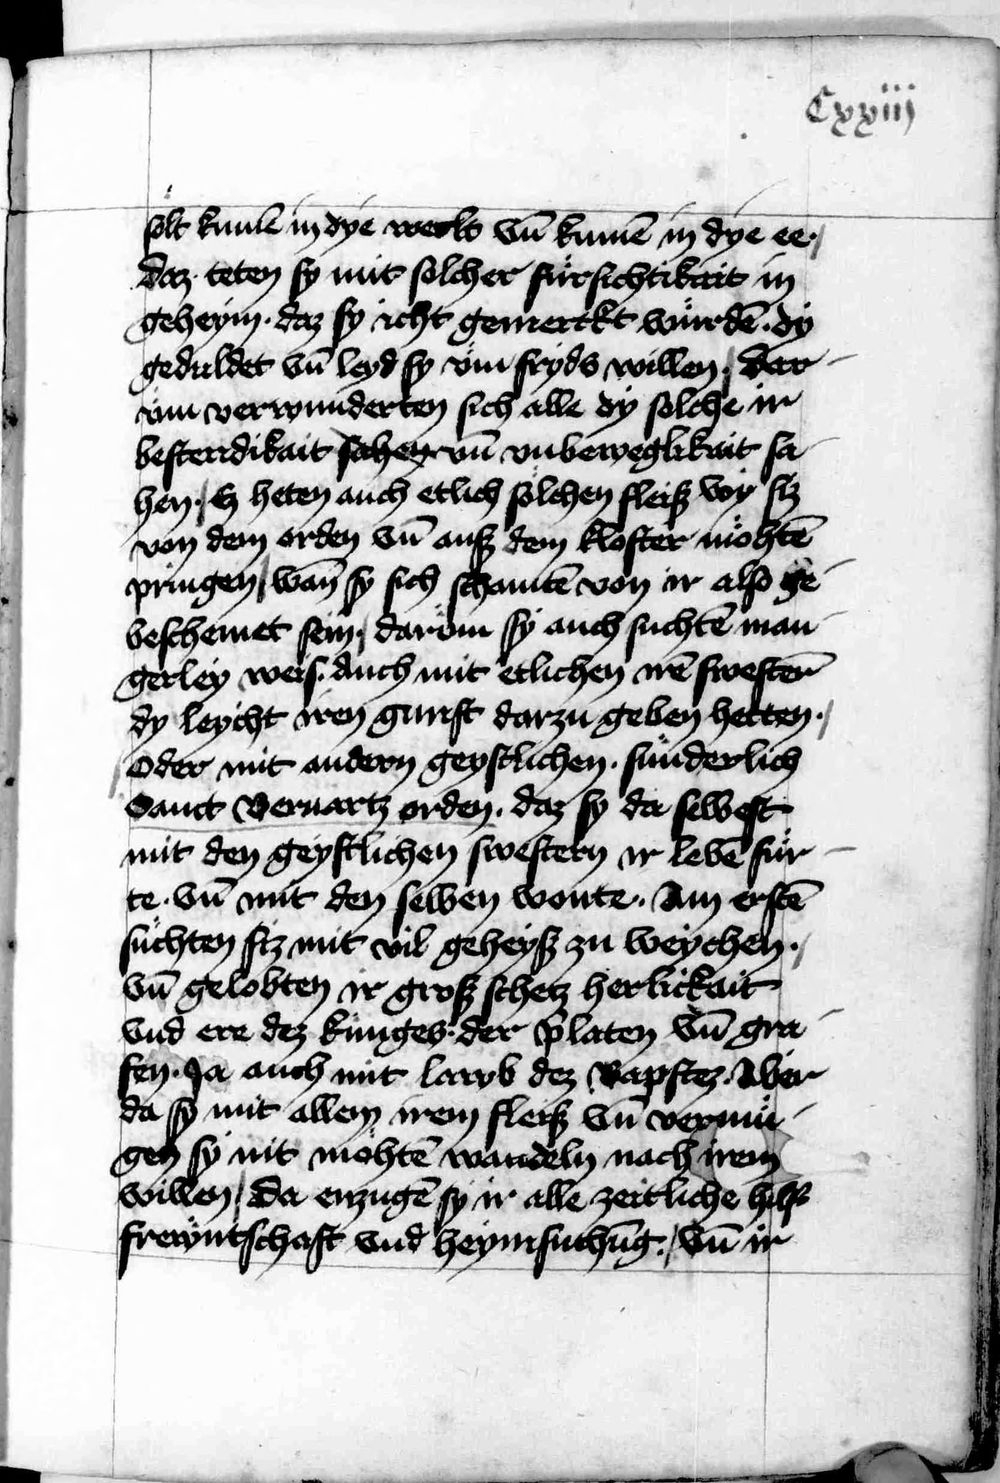 Cxxiij
sölt kumē in dye werlt vn̄ kumē in dye ee.
daz teten sy mit solcher fürsichtikait in
geheym. daz sy icht gemerckt würdē. dy
geduldet vn̄ leyd sy vm fryds willen. dar
vm verwunderten sich alle dy solche ir
bestendikait sahen vn̄ vnbeweglikait sa
hen. Es heten auch etlich sölchen fleiß wy siz
von dem orden vn̄ auß dem kloster möhtē
pringen, wan̄ sy sich schamtē von ir also ge
beschemet sein, darüm sy auch suchtē man
gerley weis. Auch mit etlichen irē swestern̄
dy leycht iren gunst darzu geben hetten.
Oder mit andern geystlichen. sünderlich
Sanct Bernartz orden. daz sy da selbest
mit den geystlichen swestern ir lebē für
te. vn̄ mit den selben wonte. Am erstē
süchten siz mit vil geheyß zu weychen.
vn̄ gelobten ir groß schetz herlickait
vnd ere dez künges. der p̄laten vn̄ gra
fen. Ja auch mit lawb dez Bapstez. Aber
da sy mit allem irem fleiß vn̄ vermü
gen sy nit möhtē wandeln nach irem
willen, Da enzugē sy ir alle zeitliche hilf
frewntschaft vnd heymsuchūg. vn̄ ir